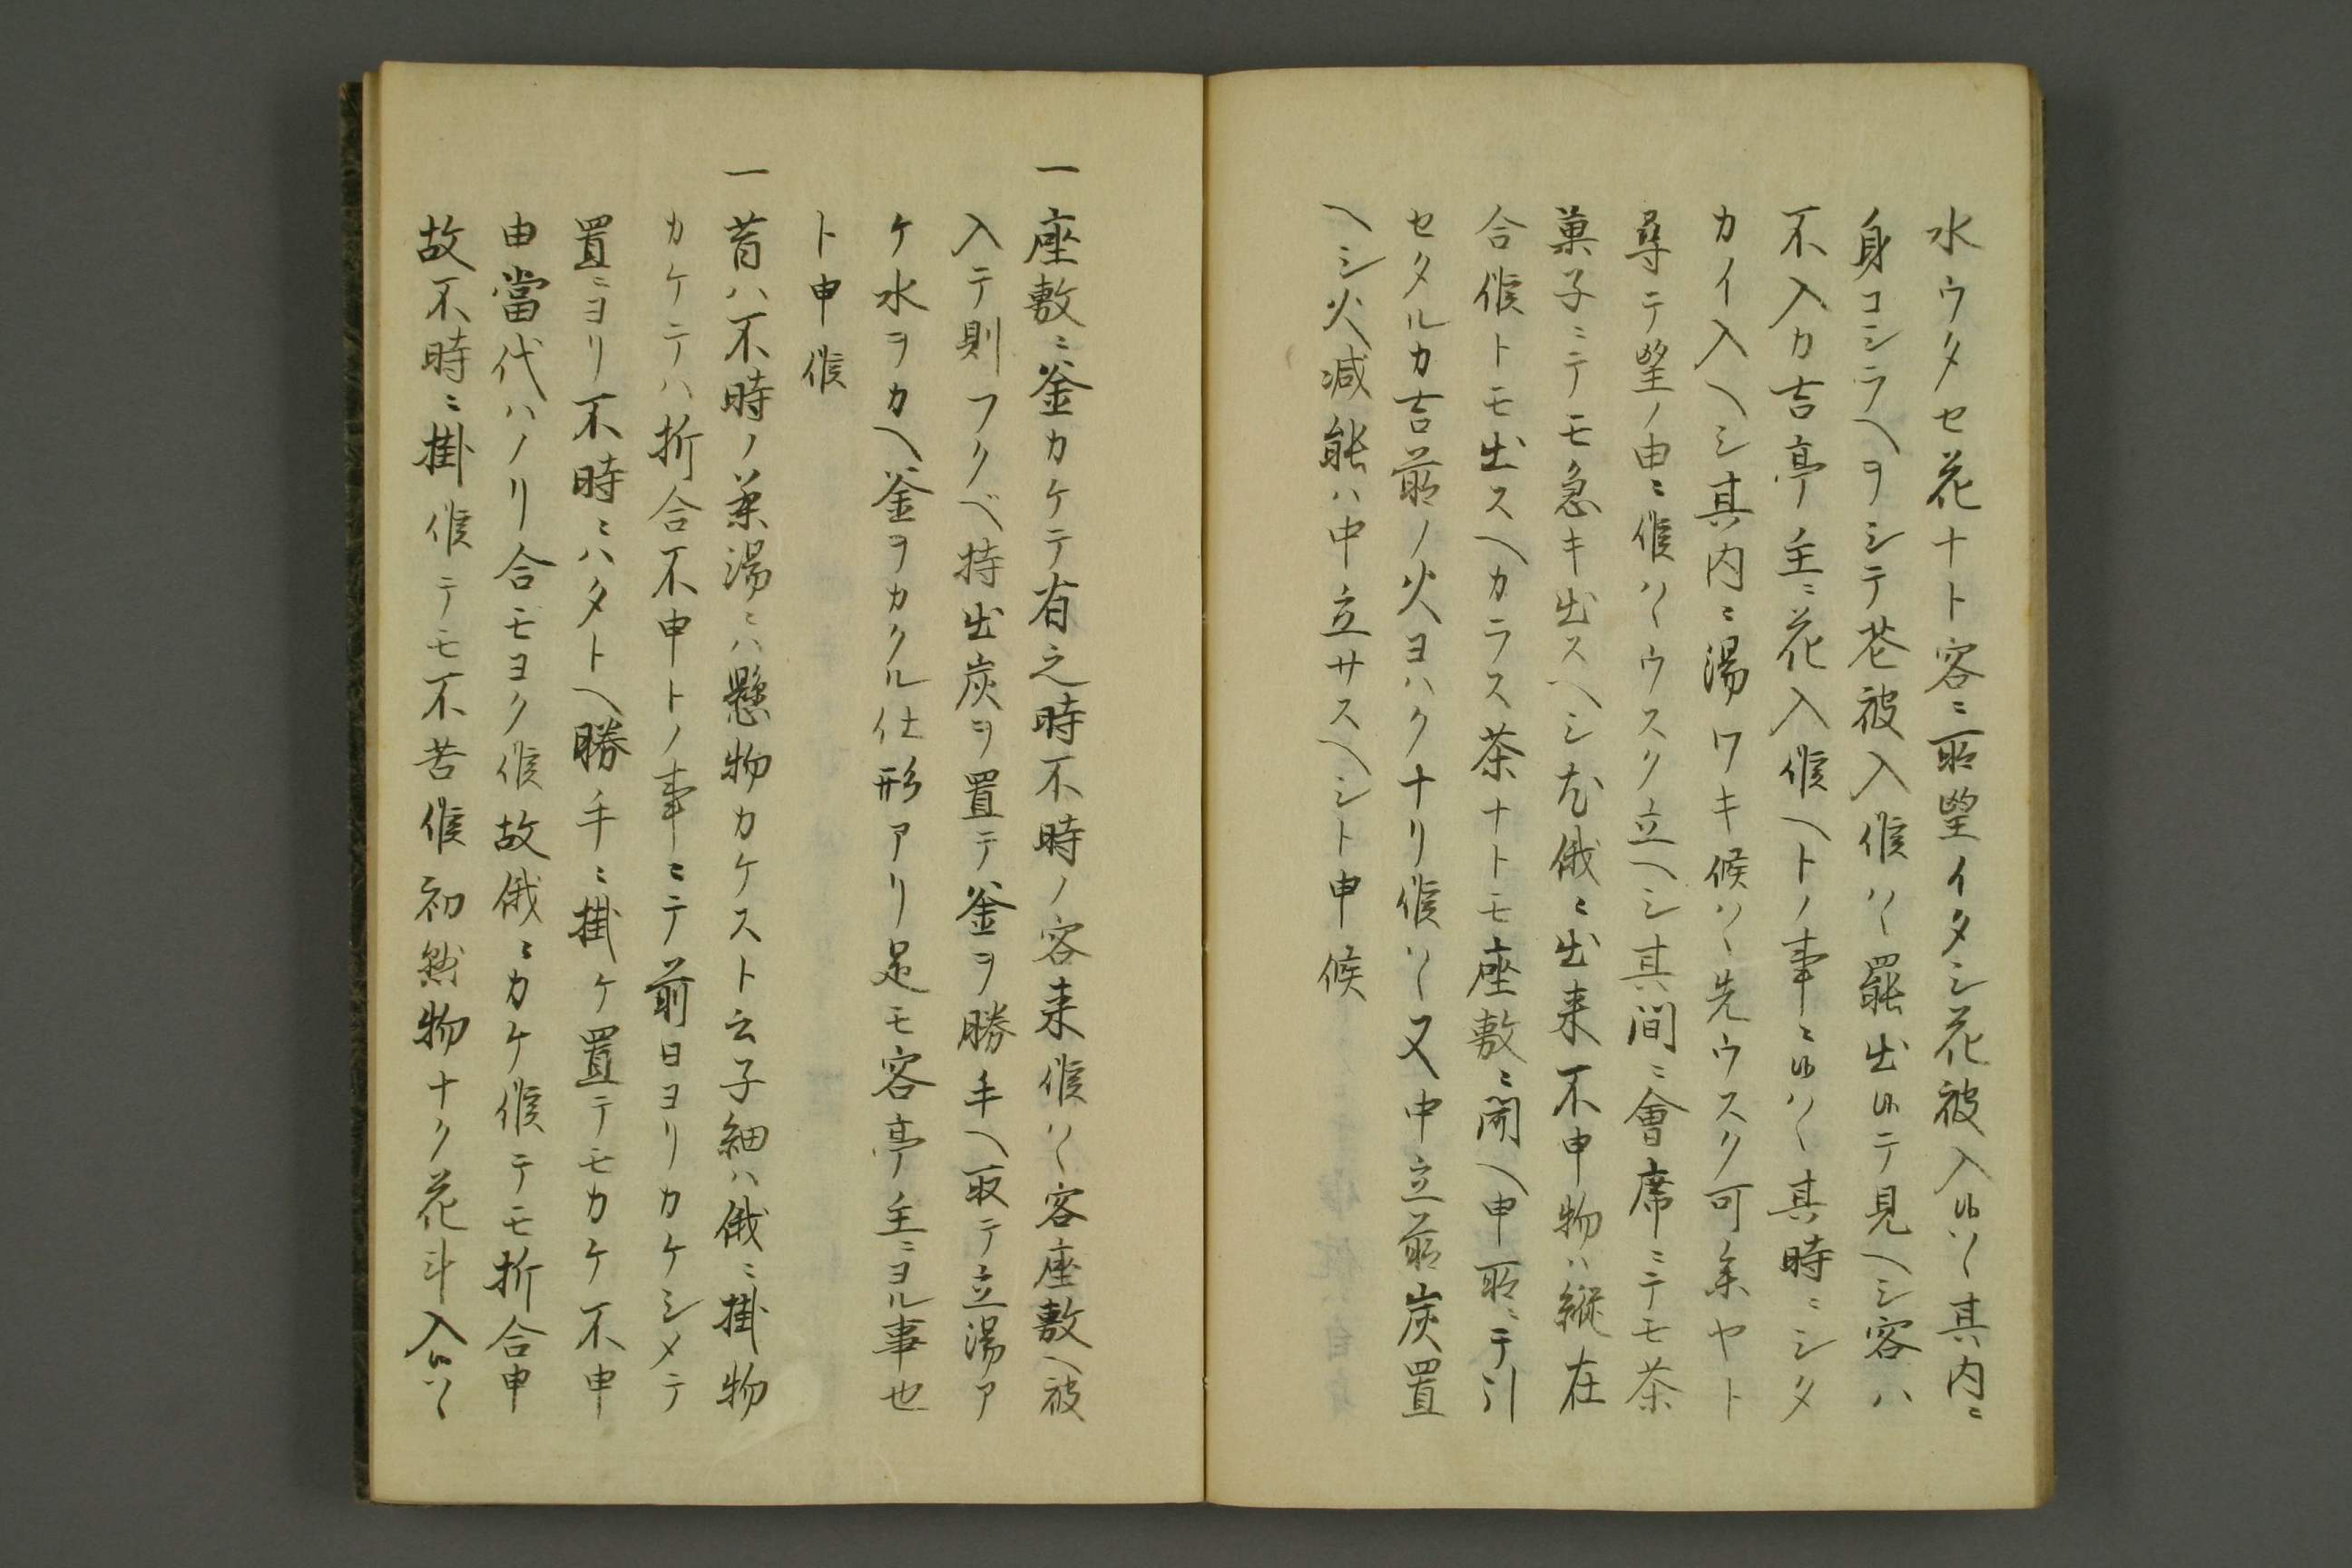 水ウタセ花ナト客ニ所望イタシ花被入候ハヽ其内ニ
身コシラヘヲシテ花被入候ハヽ罷出候テ見ヘシ客ハ
不入カ吉亭主ニ花入候ヘトノ事ニ候ハヽ其時ニシタ
カイ入ヘシ其内ニ湯ワキ候ハヽ先ウスク可参ヤト
尋テ望ノ由ニ候ハヽウスク立ヘシ其間ニ會席ニテモ茶
菓子ニテモ急キ出スヘシ尤俄ニ出来不申物ハ縦在
合候トモ出スヘカラス茶ナトモ座敷ニ聞ヘ申所ニテ引
セタルカ吉前ノ火ヨハクナリ候ハヽ又中立前炭置
ヘシ火減能ハ中立サスヘシト申候
一座敷ニ釜カケテ有之時不時ノ客来候ハヽ客座敷ヘ被
入テ則フクベ持出炭ヲ置テ釜ヲ勝手ヘ取テ立湯ア
ケ水ヲカヘ釜ヲカクル仕形アリ是モ客亭主ニヨル事也
ト申候
一昔ハ不時ノ茶湯ニハ懸物カケスト云子細ハ俄ニ掛物
カケテハ折合不申トノ事ニテ前日ヨリカケシメテ
置ニヨリ不時ニハタトヘ勝手ニ掛ケ置テモカケ不申
由當代ハノリ合モヨク候故俄ニカケ候テモ折合申
故不時ニ掛候テモ不苦候初然物ナク花斗入候ハヽ